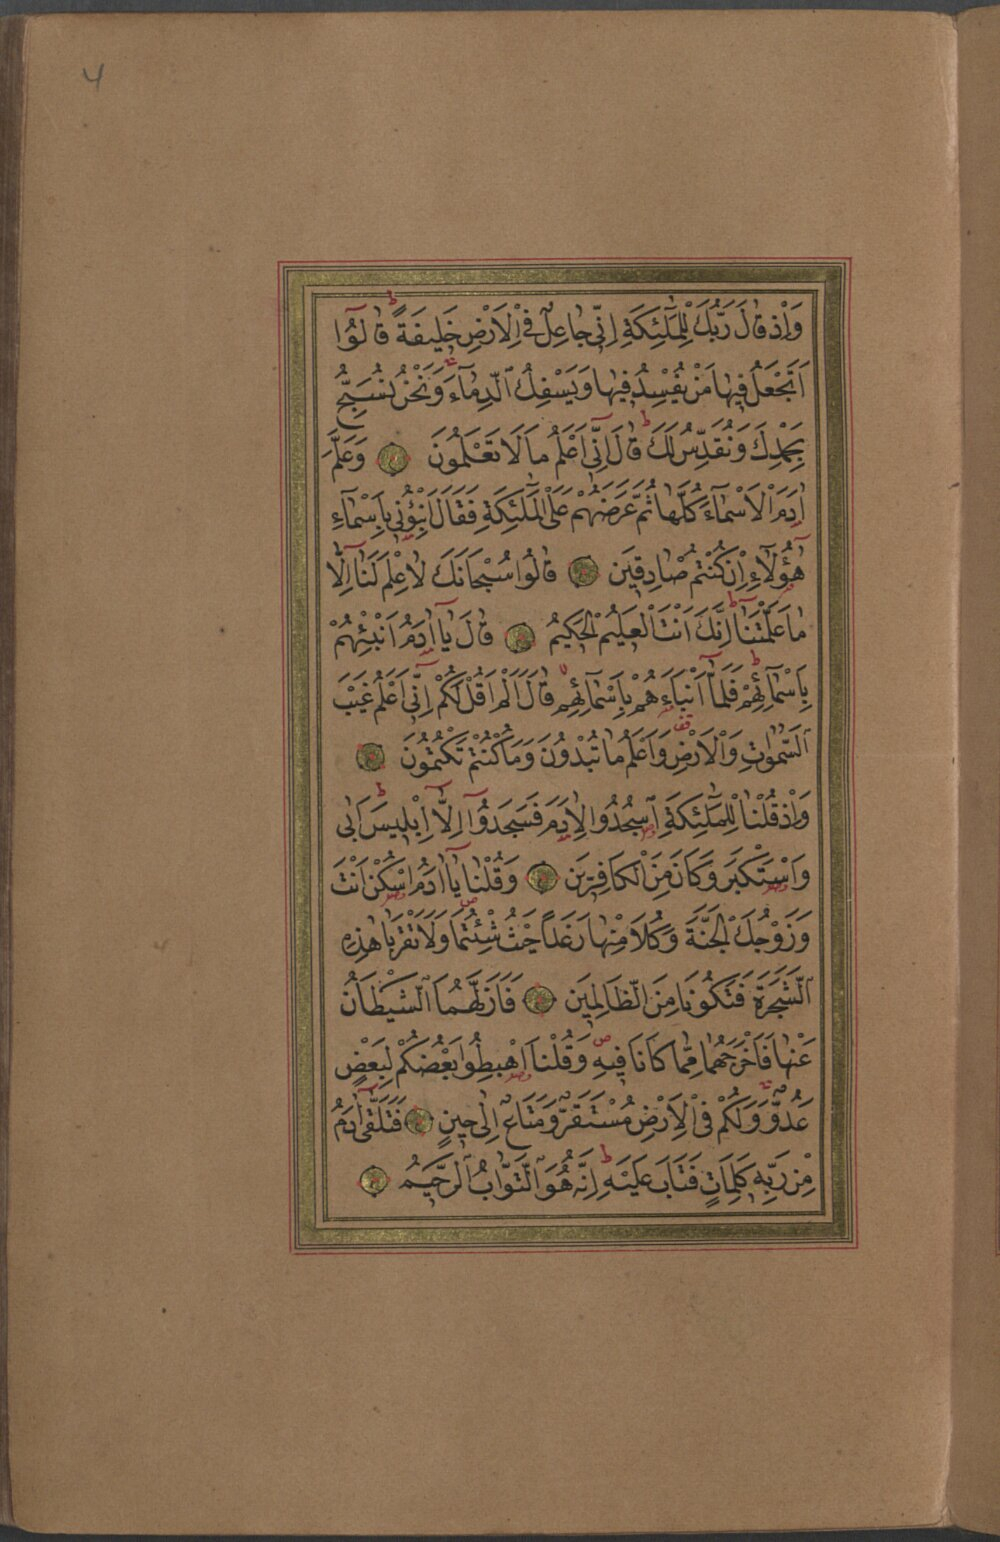 4
وَاِذْ قَالَ رَبُّكَ لِلْمَلٰٓئِكَةِ اِنّٖى جَاعِلٌ فِى الْاَرْضِ خَلٖيفَةً قَالُٓوا
اَتَجْعَلُ فٖيهَا مَنْ يُفْسِدُ فٖيهَا وَيَسْفِكُ الدِّمَٓاءَ وَنَحْنُ نُسَبِّحُ
بِحَمْدِكَ وَنُقَدِّسُ لَكَ قَالَ اِنّٖٓى اَعْلَمُ مَا لَا تَعْلَمُونَ وَعَلَّمَ
اٰدَمَ الْاَسْمَٓاءَ كُلَّهَا ثُمَّ عَرَضَهُمْ عَلَى الْمَلٰٓئِكَةِ فَقَالَ اَنْبِؤُنٖى بِاَسْمَٓاءِ
هٰٓؤُلَٓاءِ اِنْ كُنْتُمْ صَادِقٖينَ قَالُوا سُبْحَانَكَ لَا عِلْمَ لَنَٓا اِلَّا
مَا عَلَّمْتَنَا اِنَّكَ اَنْتَ الْعَلٖيمُ الْحَكٖيمُ قَالَ يَٓا اٰدَمُ اَنْبِئْهُمْ
بِاَسْمَٓائِهِمْ فَلَمَّٓا اَنْبَاَهُمْ بِاَسْمَٓائِهِمْ قَالَ اَلَمْ اَقُلْ لَكُمْ اِنّٖٓى اَعْلَمُ غَيْبَ
السَّمٰوَاتِ وَالْاَرْضِ وَاَعْلَمُ مَا تُبْدُونَ وَمَا كُنْتُمْ تَكْتُمُونَ
وَاِذْ قُلْنَا لِلْمَلٰٓئِكَةِ اسْجُدُوا لِاٰدَمَ فَسَجَدُٓوا اِلَّٓا اِبْلٖيسَ اَبٰى
وَاسْتَكْبَرَ وَكَانَ مِنَ الْكَافِرٖينَ وَقُلْنَا يَٓا اٰدَمُ اسْكُنْ اَنْتَ
وَزَوْجُكَ الْجَنَّةَ وَكُلَا مِنْهَا رَغَدًا حَيْثُ شِئْتُمَا وَلَا تَقْرَبَا هٰذِهِ
الشَّجَرَةَ فَتَكُونَا مِنَ الظَّالِمٖينَ فَاَزَلَّهُمَا الشَّيْطَانُ
عَنْهَا فَاَخْرَجَهُمَا مِمَّا كَانَا فٖيهِ وَقُلْنَا اهْبِطُوا بَعْضُكُمْ لِبَعْضٍ
عَدُوٌّ وَلَكُمْ فِى الْاَرْضِ مُسْتَقَرٌّ وَمَتَاعٌ اِلٰى حٖينٍ فَتَلَقّٰٓى اٰدَمُ
مِنْ رَبِّهٖ كَلِمَاتٍ فَتَابَ عَلَيْهِ اِنَّهُ هُوَ التَّوَّابُ الرَّحٖيمُ